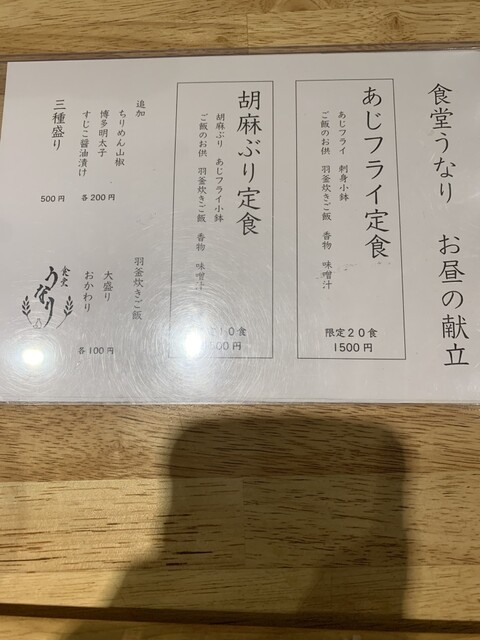 食堂うなり お昼の献立
あじフライ定食
あじフライ 刺身小鉢
ご飯のお供 羽釜炊きご飯 香物 味噌汁
限定20食
1500円
胡麻ぶり定食
胡麻ぶり あじフライ小鉢
ご飯のお供 羽釜炊きご飯 香物 味噌汁
10食
00円
追加
ちりめん山椒
博多明太子
すじこ醤油漬け
各200円
三種盛り
500円
羽釜炊きご飯
大盛り
おかわり
各100円
食堂
うなり